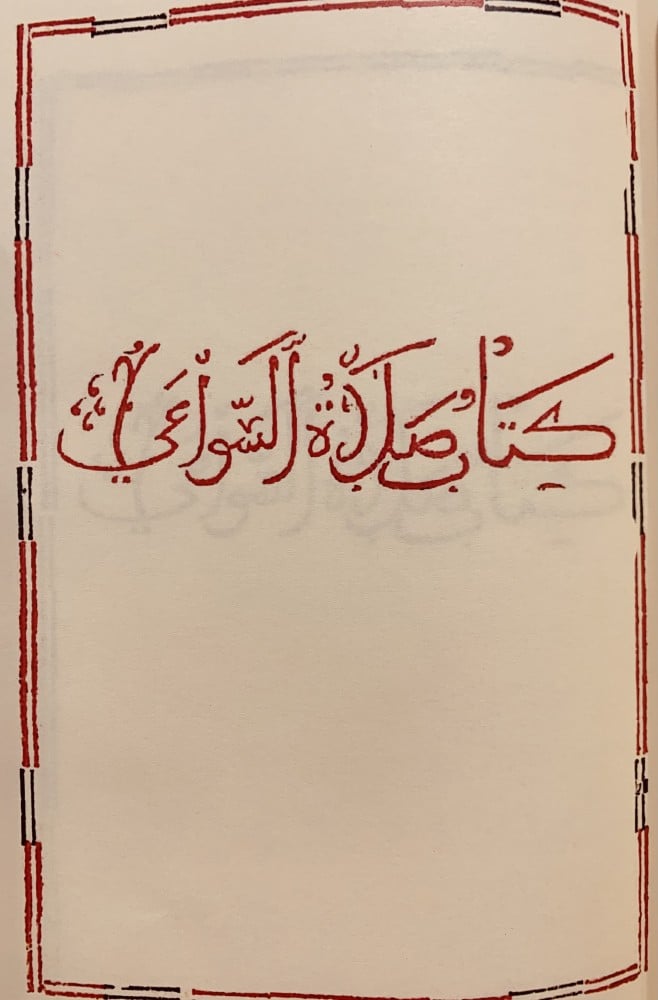 كِتَابُ صَلَاةُ السَّوَاعِي